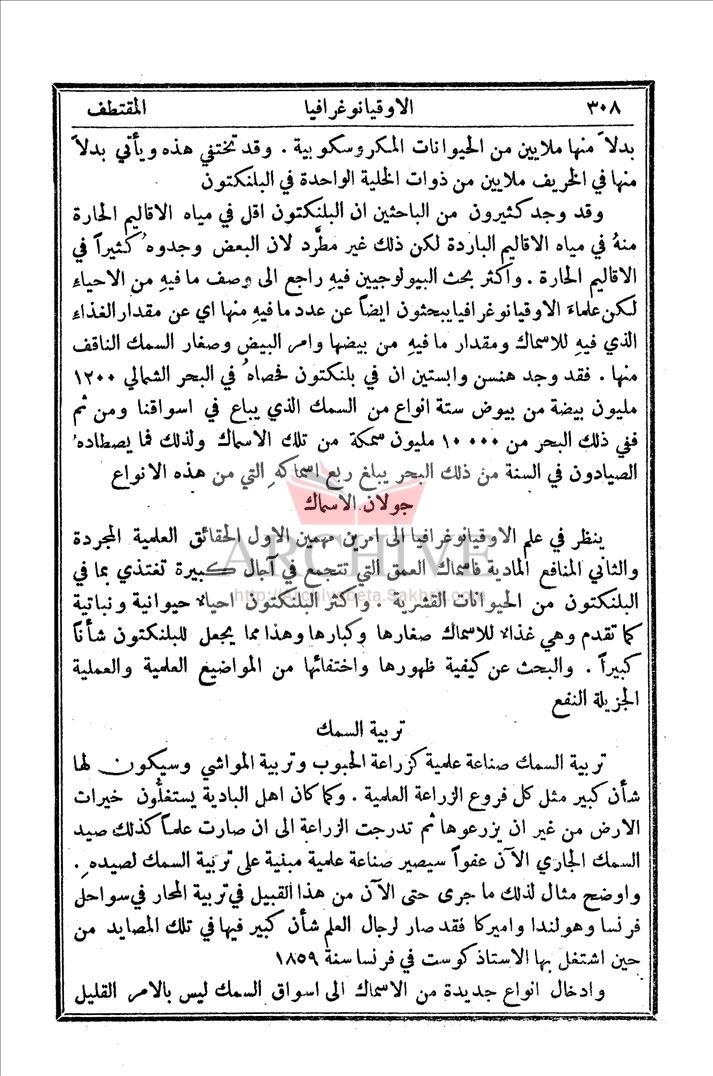 ٣٠٨ الاوقيانوغرافيا المقتطف
بدلاً منها ملايين من الحيوانات المكروسكوبية . وقد تختفي هذه ويأتي بدلاً
منها في الخريف ملايين من ذوات الخلية الواحدة في البلنكتون
وقد وجد كثيرون من الباحثين ان البلنكتون اقل في مياه الاقاليم الحارة
منهُ في مياه الاقاليم الباردة لكن ذلك غير مطَّرد لان البعض وجدوهُ كثيراً في
الاقاليم الحارة . واكثر بحث البيولوجيين فيهِ راجع الى وصف ما فيهِ من الاحياء
لكن علماء الاوقيانوغرافيا يبحثون ايضاً عن عدد ما فيهِ منها اي عن مقدار الغذاء
الذي فيهِ للاسماك ومقدار ما فيهِ من بيضها وامر البيض وصغار السمك الناقف
منها . فقد وجد هنسن وابستين ان في بلنكتون فحصاهُ في البحر الشمالي ١٢٠٠
مليون بيضة من بيوض ستة انواع من السمك الذي يباع في اسواقنا ومن ثم
ففي ذلك البحر من ١٠٠٠٠ مليون سمكة من تلك الاسماك ولذلك فما يصطادهُ
الصيادون في السنة من ذلك البحر يبلغ ربع اسماكهِ التي من هذه الانواع
جولان الاسماك
ينظر في علم الاوقيانوغرافيا الى امرين مهمين الاول الحقائق العلمية المجردة
والثاني المنافع المادية فاسماك العمق التي تتجمع في آجال كبيرة تغتذي بما في
البلنكتون من الحيوانات القشرية . واكثر البلنكتون احياء حيوانية ونباتية
كما تقدم وهي غذاء للاسماك صغارها وكبارها وهذا مما يجعل للبلنكتون شأناً
كبيراً . والبحث عن كيفية ظهورها واختفائها من المواضيع العلمية والعملية
الجزيلة النفع
تربية السمك
تربية السمك صناعة علمية كزراعة الحبوب وتربية المواشي وسيكون لها
شأن كبير مثل كل فروع الزراعة العلمية . وكما كان اهل البادية يستغلُّون خيرات
الارض من غير ان يزرعوها ثم تدرجت الزراعة الى ان صارت علماً كذلك صيد
السمك الجاري الآن عفواً سيصير صناعة علمية مبنية على تربية السمك لصيدهِ .
واوضح مثال لذلك ما جرى حتى الآن من هذا القبيل في تربية المحار في سواحل
فرنسا وهولندا واميركا فقد صار لرجال العلم شأن كبير فيها في تلك المصايد من
حين اشتغل بها الاستاذ كوست في فرنسا سنة ١٨٥٩
وادخال انواع جديدة من الاسماك الى اسواق السمك ليس بالامر القليل
ARCHIVE